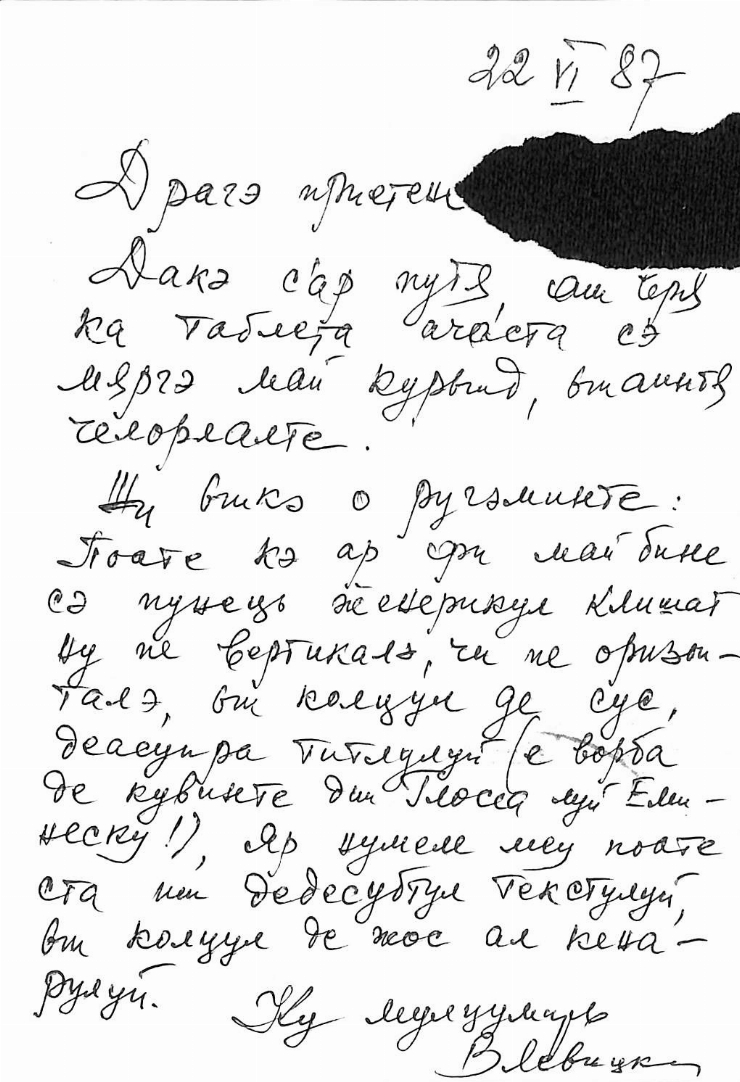 22 VI 87
Драгэ приетен
Дакэ с'ар путя, аш черя
ка таблета ачаста сэ
мяргэ май курынд, ынаинтя
челорлалте.
Ши ынкэ о ругэминте:
Поате кэ ар фи май бине
сэ пунець ӂенерикул клишат
ну пе вертикалэ, чи пе оризон-
талэ, ын колцул де сус,
деасупра титлулуй (е ворба
де кувинте дин Глосса луй Еми-
неску!), яр нумеле меу поате
ста ши дедесубтул текстулуй,
ын колцул де жос ал кена-
рулуй.
Ку мулцумирь
В Левицки